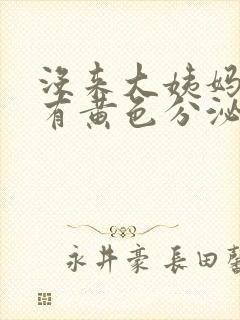 没来大姨妈
有黄色分泌
永井豪 長田馨